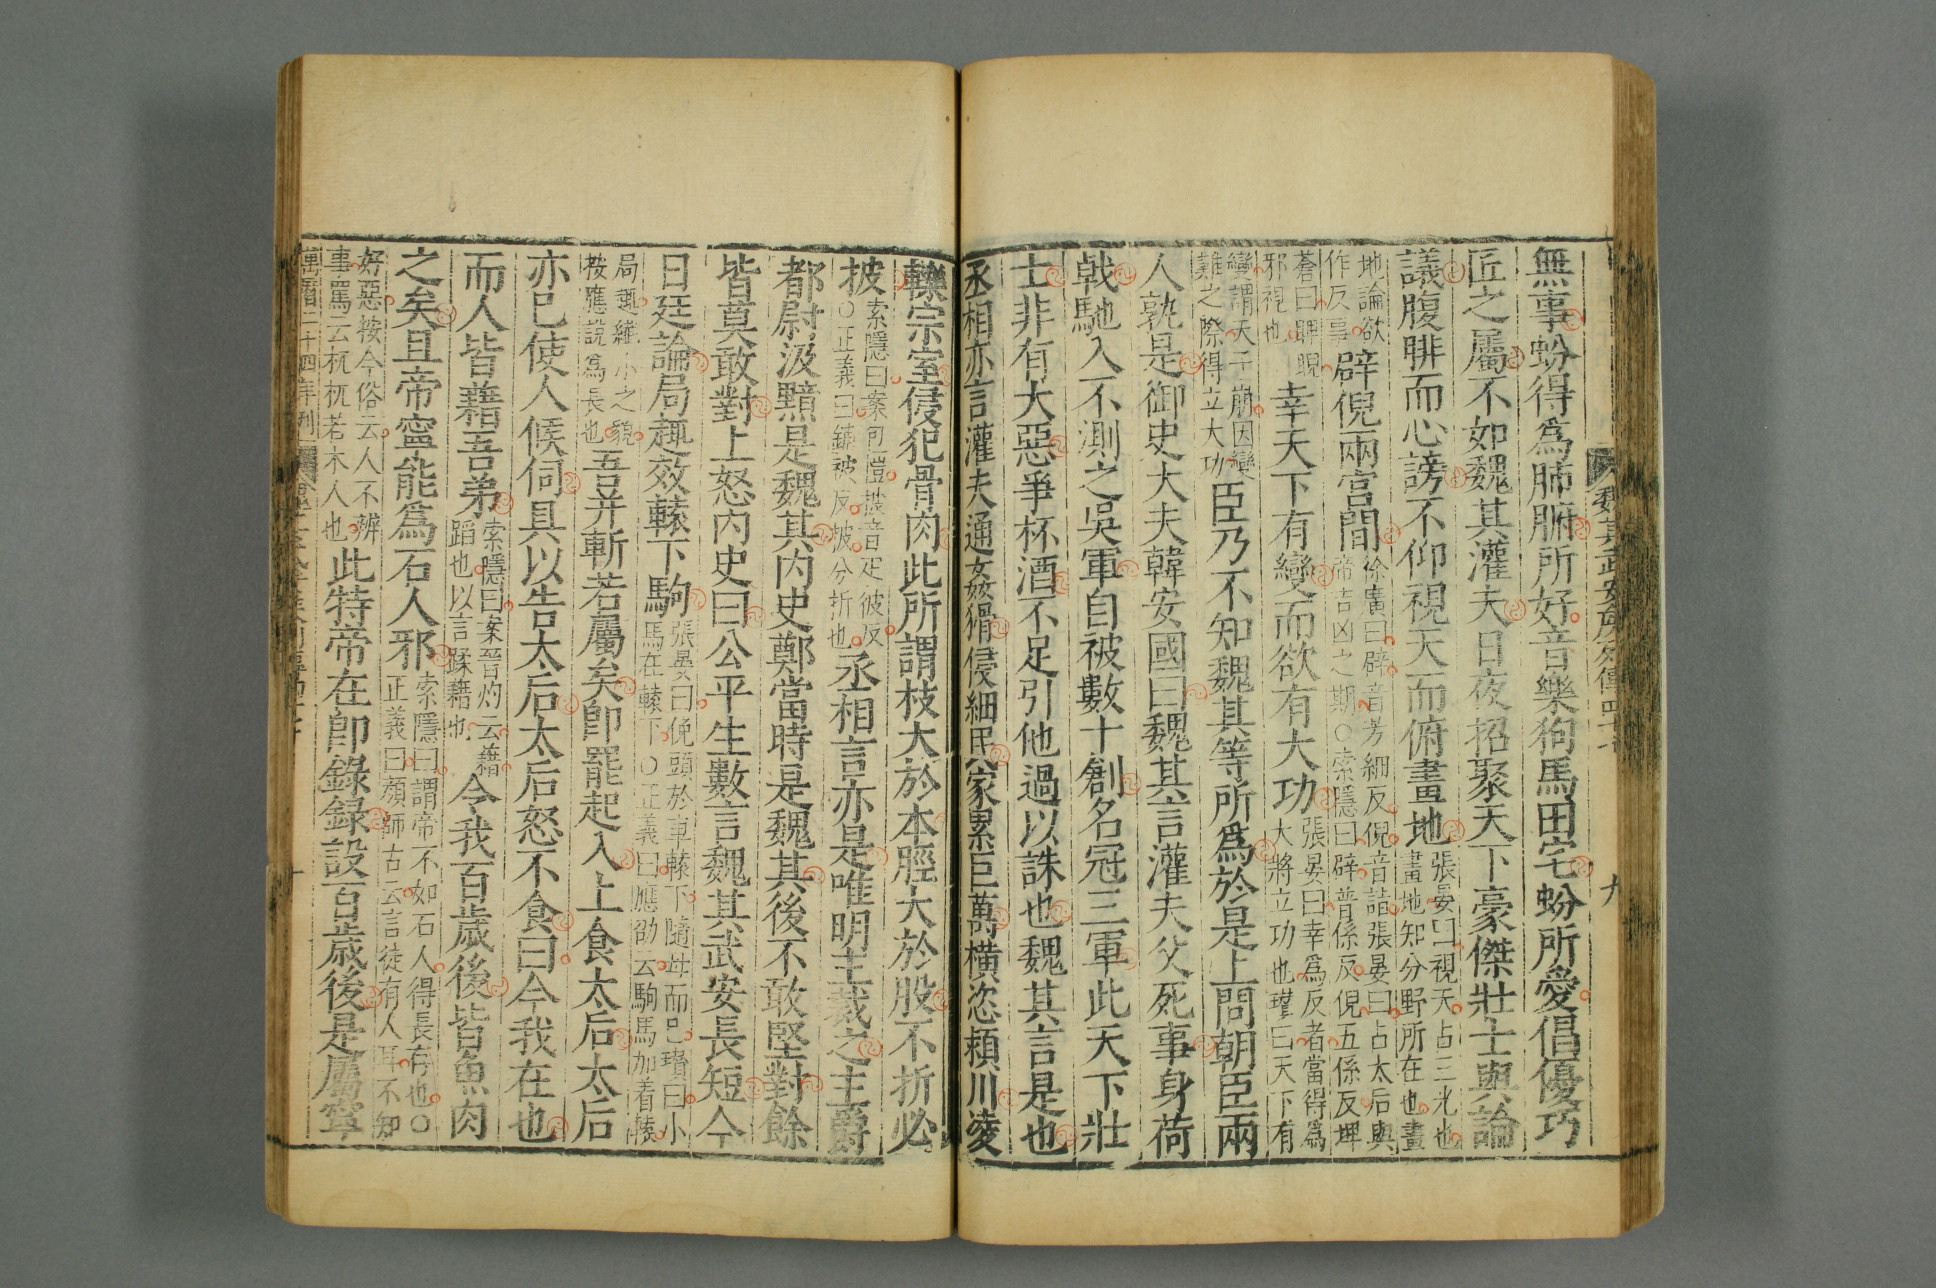 魏其武安侯列傳四十七
九
無事蚡得爲肺腑所好音樂狗馬田宅蚡所愛倡優巧
匠之屬不如魏其灌夫日夜招聚天下豪傑壯士與論
議腹腓而心謗不仰視天而俯畫地張晏曰視天占三光也畫地知分野所在也畫
地論欲作反事辟倪兩宮間徐廣曰辟音芳細反倪音詣張晏曰占太后與帝吉凶之期○索隱曰辟普係反倪五係反埤
蒼曰睥睨邪視也幸天下有變而欲有大功張晏曰幸爲反者當得爲大將立功也瓚曰天下有
變謂天子崩因變難之際得立大功臣乃不知魏其等所爲於是上問朝臣兩
人孰是御史大夫韓安國曰魏其言灌夫父死事身荷
戟馳入不測之吳軍自被數十創名冠三軍此天下壯
士非有大惡爭杯酒不足引他過以誅也魏其言是也
丞相亦言灌夫通姦猾侵細民家累巨萬橫恣潁川凌
轢宗室侵犯骨肉此所謂枝大於本脛大於股不折必
披索隱曰案包愷披音疋彼反○正義曰鋪被反披分折也丞相言亦是唯明主裁之主爵
都尉汲黯是魏其內史鄭當時是魏其後不敢堅對餘
皆莫敢對上怒內史曰公平生數言魏其武安長短今
日廷論局趣效轅下駒張晏曰俛頭於車轅下隨母而已瓚曰小馬在轅下○正義曰應劭云駒馬加着轅
局趣纖小之貌按應說爲長也吾并斬若屬矣卽罷起入上食太后太后
亦已使人候伺具以告太后太后怒不食曰今我在也
而人皆藉吾弟索隱曰案晉灼云藉蹈也以言蹂藉也今我百歲後皆魚肉
之矣且帝寧能爲石人邪索隱曰謂帝不如石人得長存也○正義曰顏師古云言徒有人耳不知
好惡按今俗云人不辨事罵云杌杌若木人也此特帝在卽錄錄設百歲後是屬寧